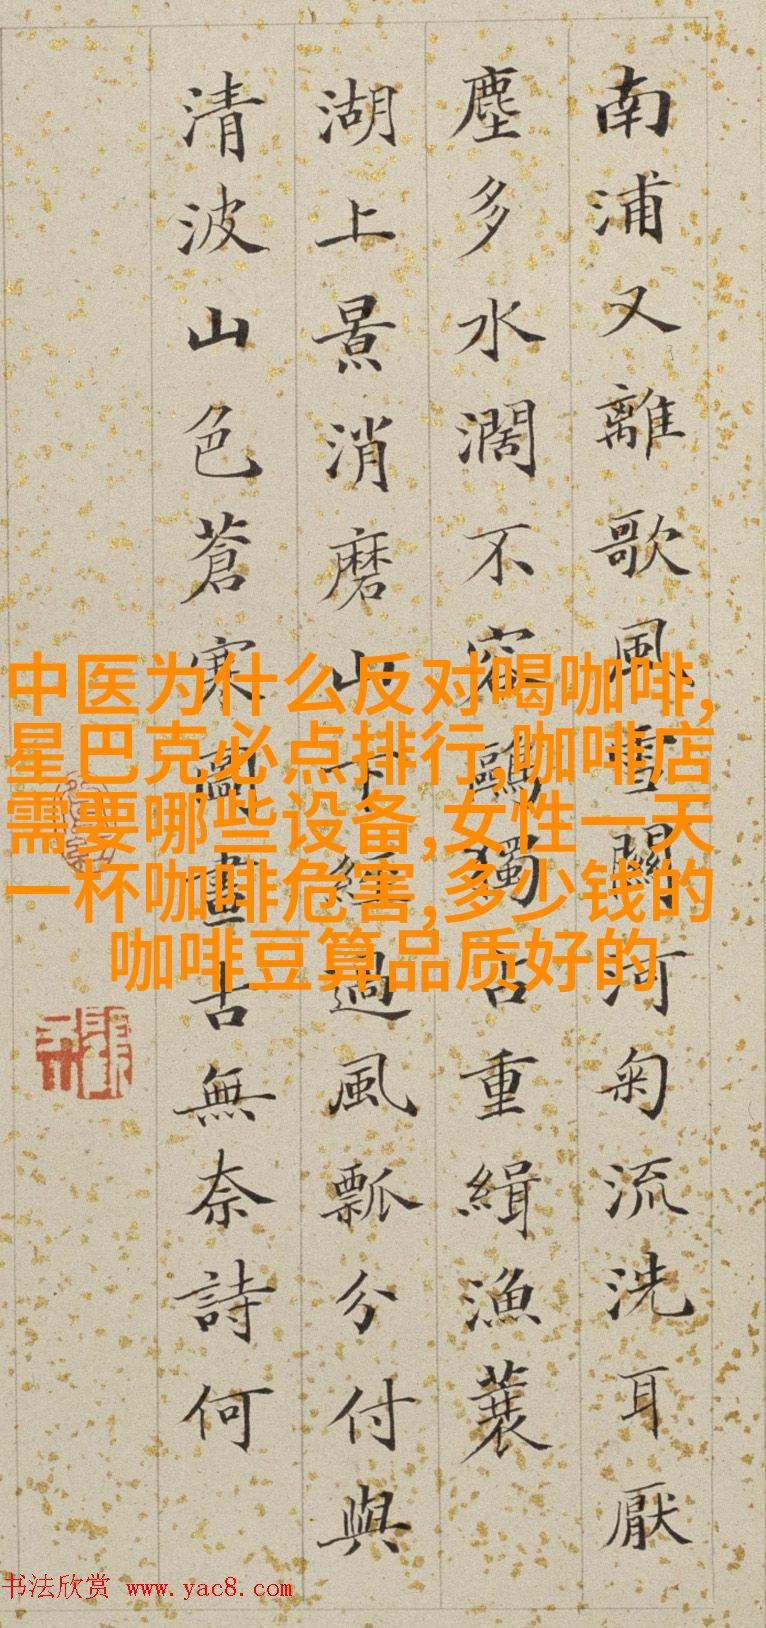 南浦又離歌風雪關河匊流洗耳厭
塵多水濶不容鷗獨占重緝漁蓑
湖上景消磨山下經過風瓢分付與
清波山色蒼寒圖畫古無奈詩何
中医为什么反对喝咖啡,
星巴克必点排行,咖啡店
需要哪些设备,女性一天
一杯咖啡危害,多少钱的
咖啡豆算品质好的
书法欣赏 www.yac8.com